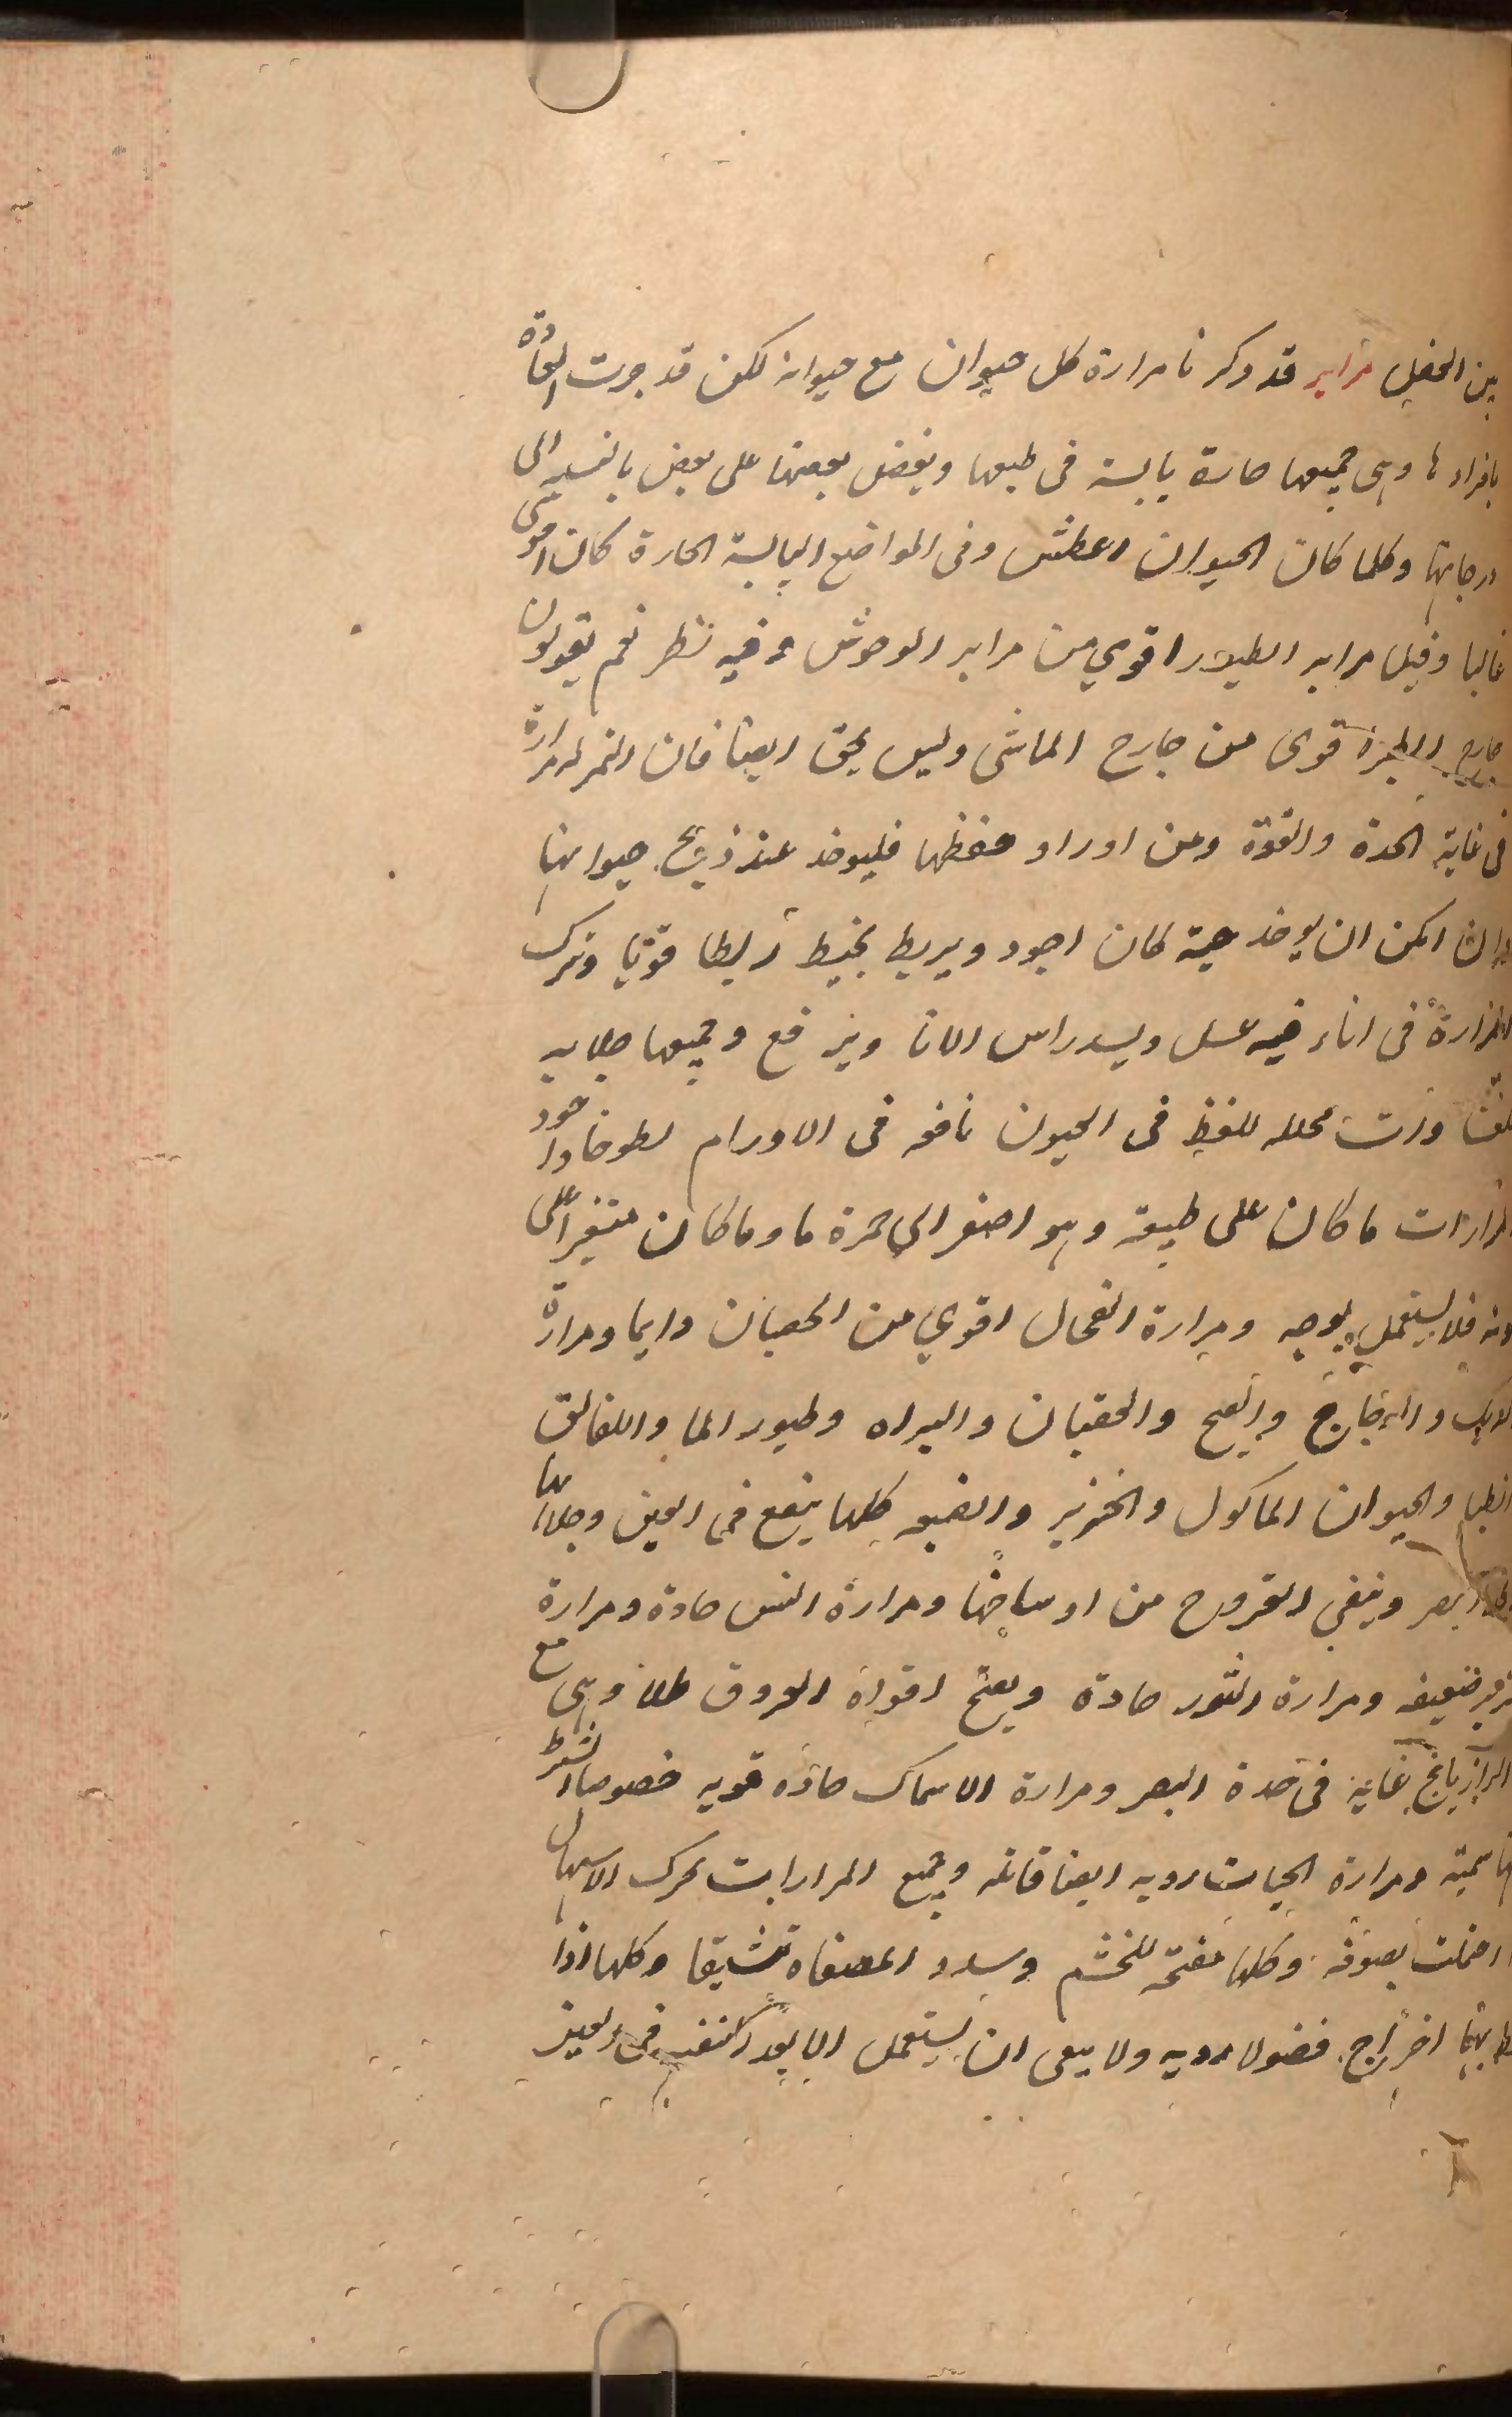 بين الحقل مراير قد دكرنا مرارة كل حيوان مع حيوانه لكن قد جرت العادة
بافرادها وهى جميعها حارة يابسة فى طبعها ويفضل بعضها على بعض بالنسبه الى
درجاتها وكلما كان الحيوان اعطش وفى المواضع اليابسة الحارة كان اقوى
غالبا وقيل مراير الطيور اقوي من مراير الوحوش وفيه نظر نعم يقولون
جارح الطير قوى من جارح الماشى وليس بحق ايضا فان النمر له مرارة
فى غاية الحدة والقوة ومن اراد حفظها فليوخذ عند ذبح حيوانها
وان امكن ان يوخذ حية كان اجود ويربط بخيط ربطا قويا وتترك
المرارة فى اناء فيه عسل ويسد راس الانا ويرفع وجميعها جلايه
محلله للغلظ فى العيون نافعه فى الاورام لطوخا واجود
المرارات ما كان على طبيعة وهو اصفر الي حمرة ما وما كان متغيرا على
لونه فلا يستعمل بوجه ومرارة الفحال اقوي من الخصيان دايما ومرارة
الديك والدجاج والقبج والعقبان والبزاه وطيور الما واللقالق
الظبا والحيوان الماكول والخنزير والضبع كلها ينفع فى العين وجلائها
البصر وينقي القروح من اوساخها ومرارة التيس حادة ومرارة
الخنزير ضعيفه ومرارة الثور حادة ويفتح افواه العروق طلا وهى مع
الرازيانج غاية فى حدة البصر ومرارة الاسماك حاده قويه خصوصا الشبوط
سمية ومرارة الحيات رديه ايضا قاتله وجميع المرارات تحرك الاسهال
احتملت بصوفه وكلها مفتحه للخشم وسدد المصفاه تنشيقا وكلها اذا
اخراج فضولا رديه ولا ينبغى ان يستعمل الا بعد فى العين